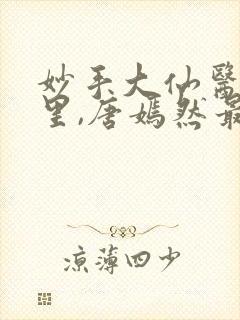 妙手大仙醫
里,唐嫣然最
涼薄四少